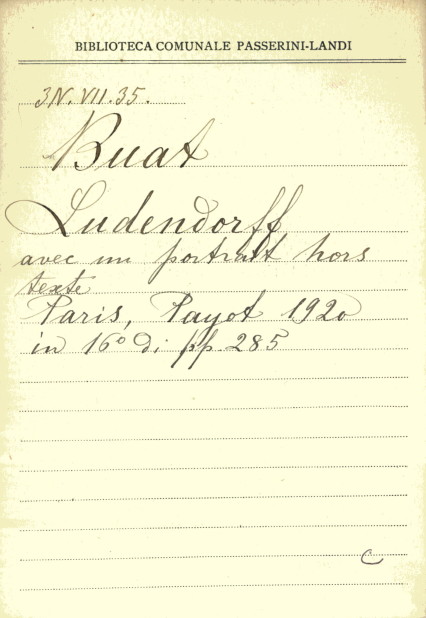 BIBLIOTECA COMUNALE PASSERINI-LANDI
3N.VII.35.
Buat
Ludendorff
avec un portrait hors
texte
Paris, Payot 1920
in 16° di pp. 285
C